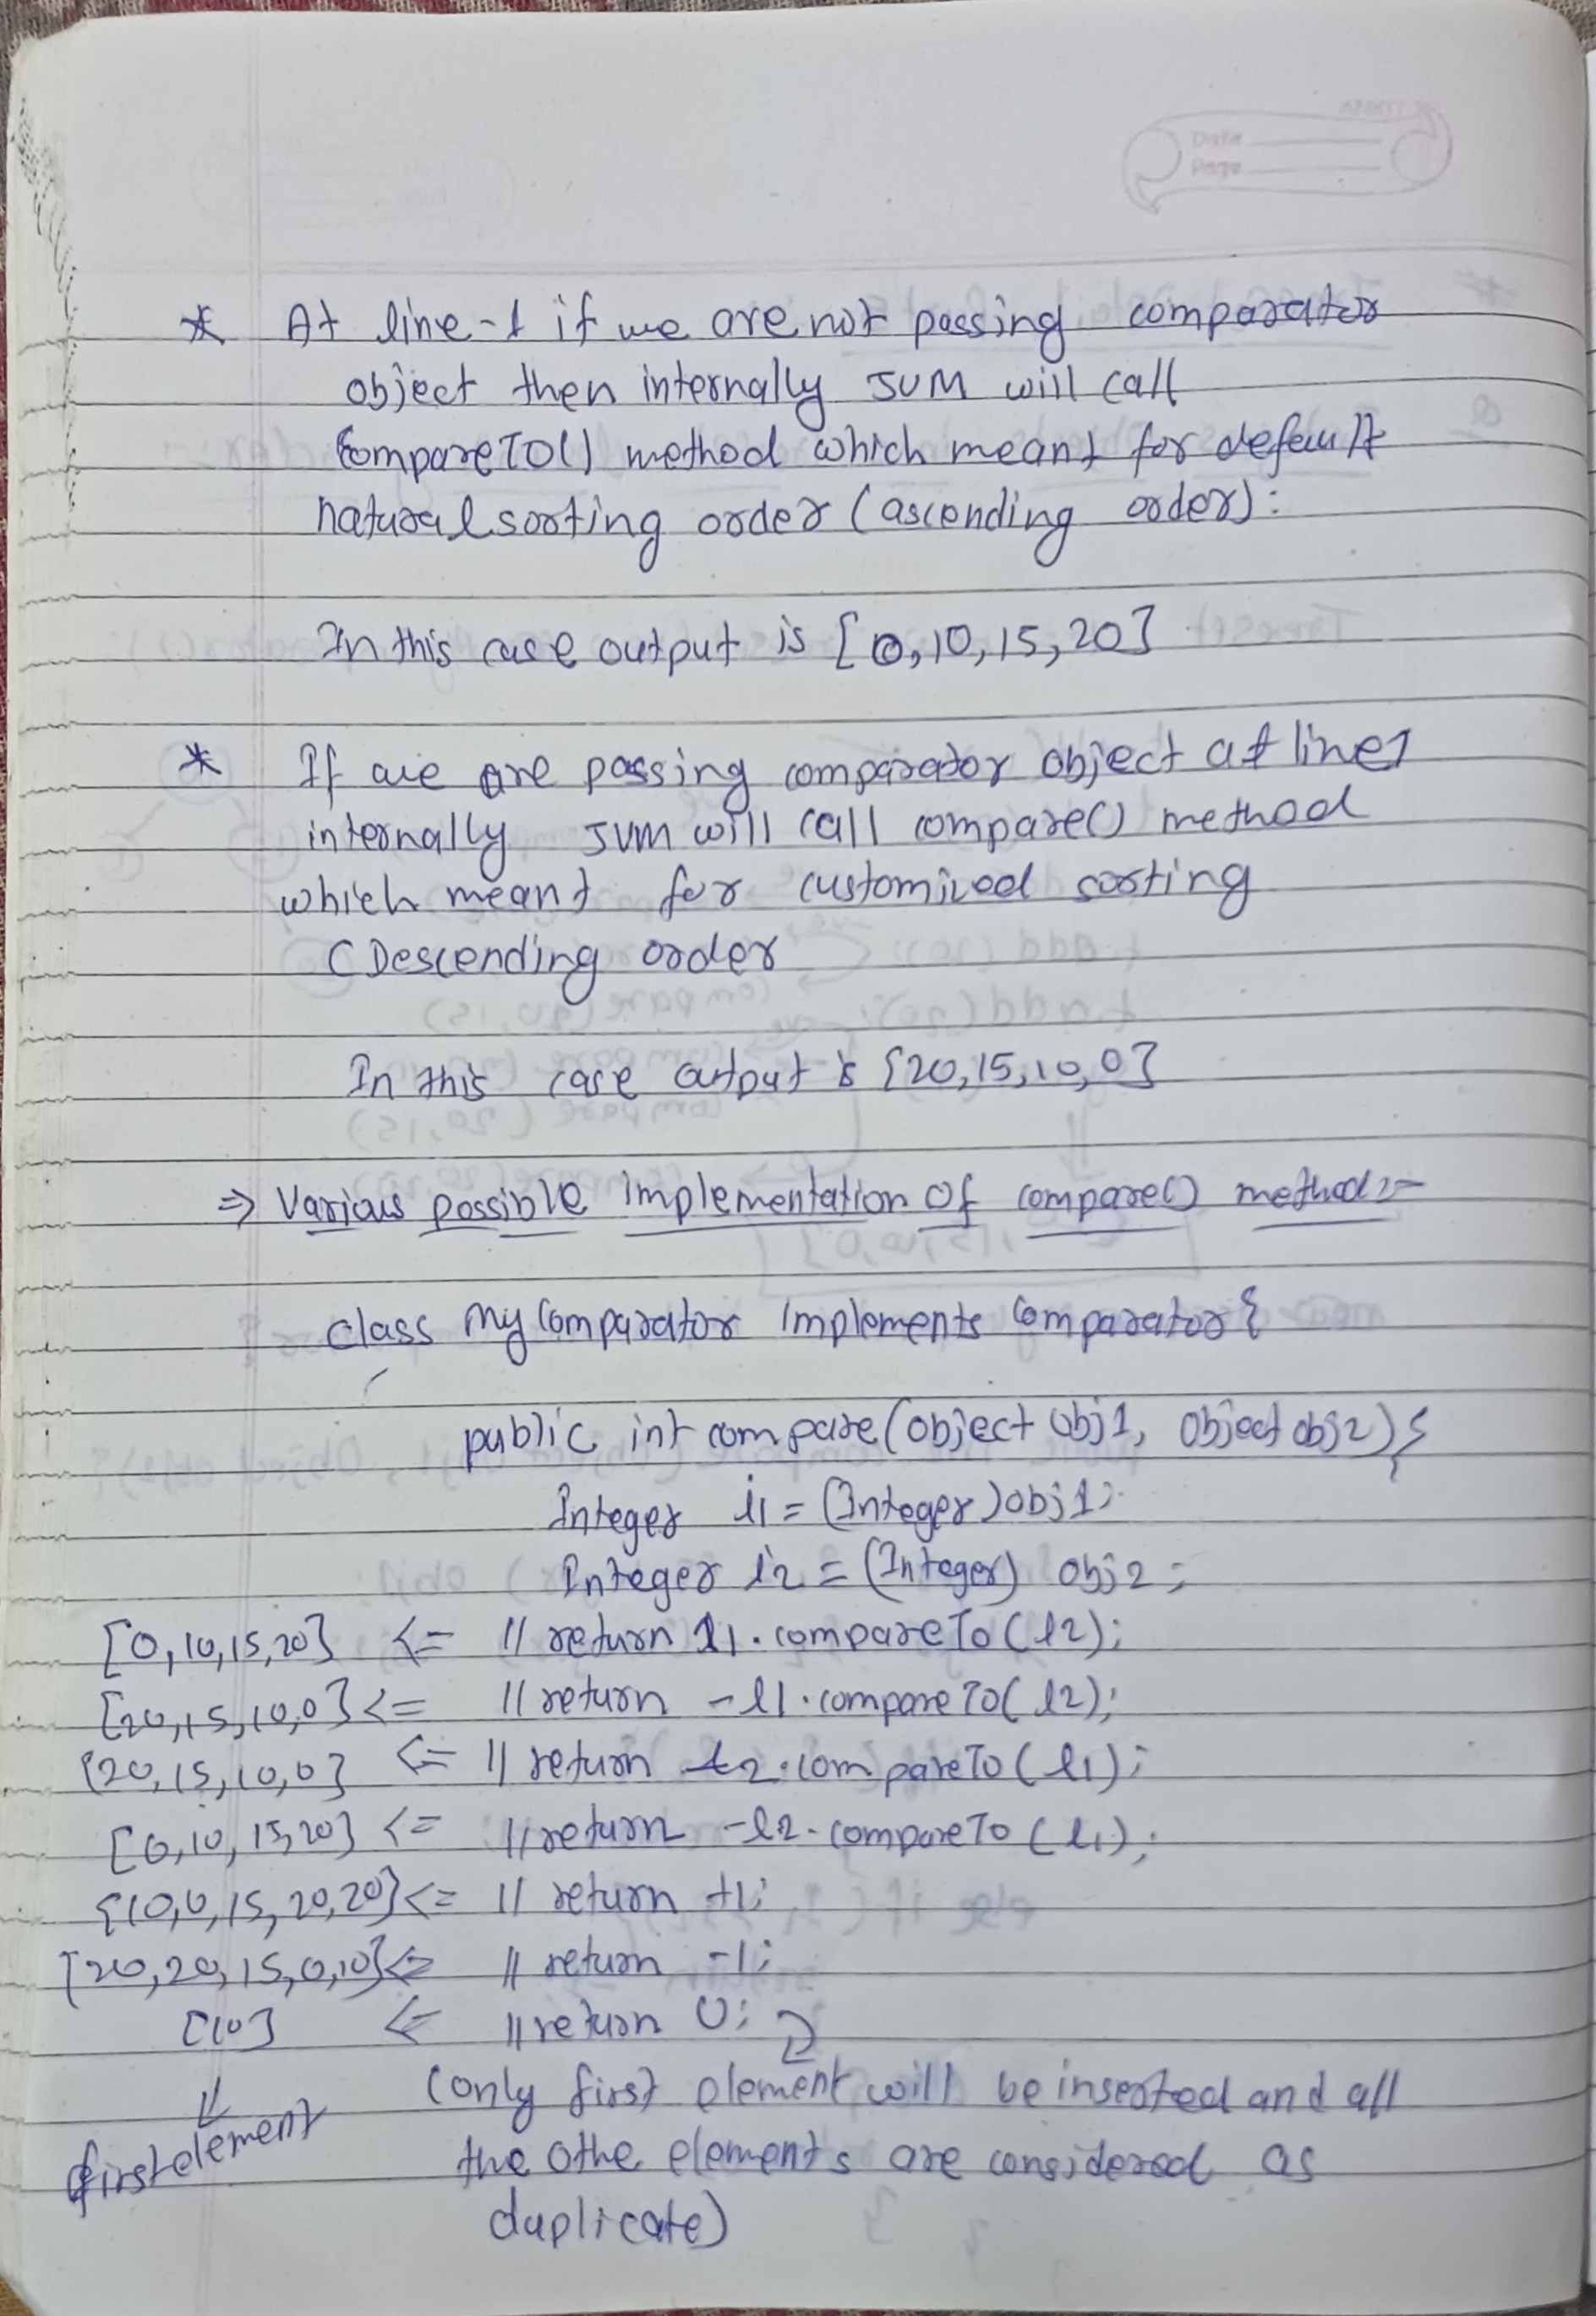 * At line-1 if we are not passing comparator
object then internally JVM will call
CompareTO() method which meant for default
natural sorting order (ascending order):
In this case output is [0,10,15,20]
* If we are passing comparator object at line1
internally JVM will call compare() method
which meant for customized sorting
(Descending order
In this case output is {20,15,10,0}
⇒ Various possible implementation of compare() method:-
class MyComparator implements Comparator{
public int compare(object obj1, object obj2){
Integer i1 = (Integer)obj1;
Integer i2 = (Integer) obj2;
[0,10,15,20] <= // return I1.compareTo(I2);
[20,15,10,0] <= // return -I1.compareTo(I2);
{20,15,10,0} <= // return I2.compareTo(I1);
[0,10,15,20] <= // return -I2.compareTo(I1);
{10,0,15,20,20} <= // return +1;
[20,20,15,0,10] <= // return -1;
[10] <= // return 0;
(only first element will be inserted and all
first element
the othe elements are considered as
duplicate)